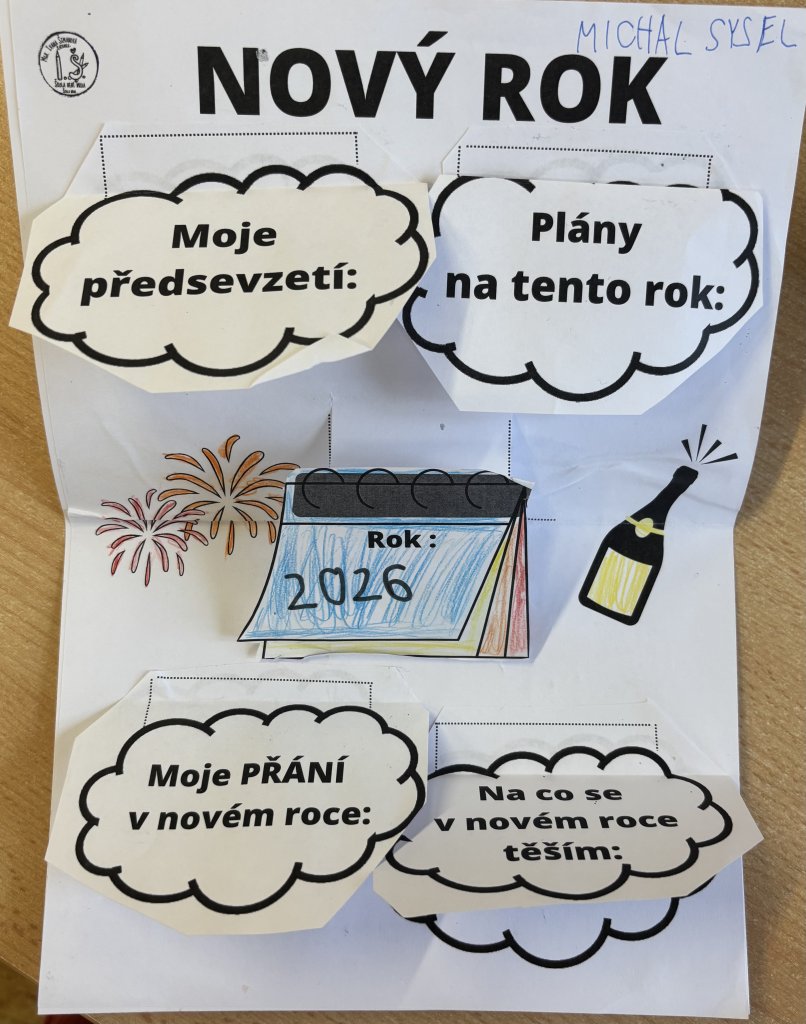 MICHAL SYSEL
NOVÝ ROK
Moje
předsevzetí:
Plány
na tento rok:
Rok :
2026
Moje PŘÁNÍ
v novém roce:
Na co se
v novém roce
těším: